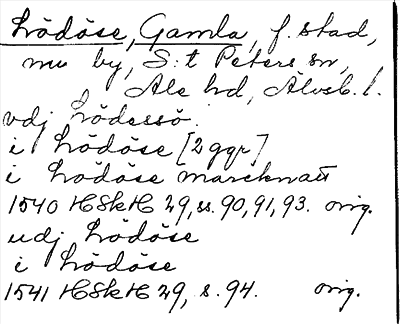 Lödöse, Gamla, f. stad,
nu by, S:t Peters sn,
Ale hd, Älvsb. l.
vdj Lödessö.
i Lödöse [2 ggr]
i Lödöse marcknatt
1540 HSkH 29, ss. 90, 91, 93. orig.
udj Lödöse
i Lödöse
1541 HSkH 29, s. 94. orig.